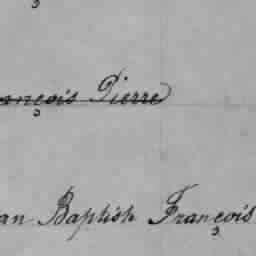 ançois Pierre
an Baptish François